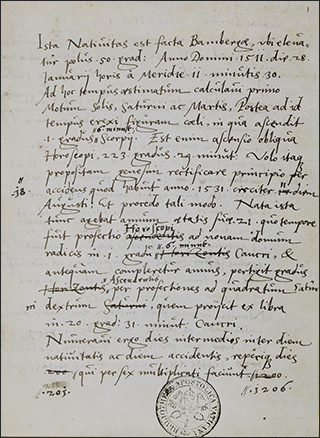 1
Ista Nativitas est facta Bambergæ, ubi eleva-
tur polus. 50. grad: Anno Domini. 1511. die. 28.
Januarij horis à Meridie. 11. minutis 30.
Ad hoc tempus æstimatum calculavi primo
Motum Solis, Saturni ac Martis, Postea ad id
tempus erexi figuram cæli, in qua ascendit
6. minut.
1. gradus Scorpij. Est enim ascensio obliqua
Horoscopi, 223. gradus. 29. minut: Volo itaq
propositam genesim rectificare principio per
accidens quod habuit anno. 1531. circiter diem
18.
Augusti. Et procedo tali modo. Nata ista
tunc agebat annum ætatis suæ. 21. quo tempore
Horoscopi
sunt profectio ad nonam domum
6. minut.
radicis in. 1. gradu Horizontis Cancri, &
antequam compleretur annus, pertigit gradus
Ascendentis
Horizontis per profectiones ad quadratum Saturni
dextrum Saturni, quem proijcit ex libra
in. 20. grad: 31. minut: Cancri.
Numeravi ergo dies intermedios inter diem
nativitatis ac diem accidentis, reperiq dies
200 qui per sex multiplicati faciunt 1200.
.201. .1206.
BIBLIOTHECA APOSTOLICA VATICANA